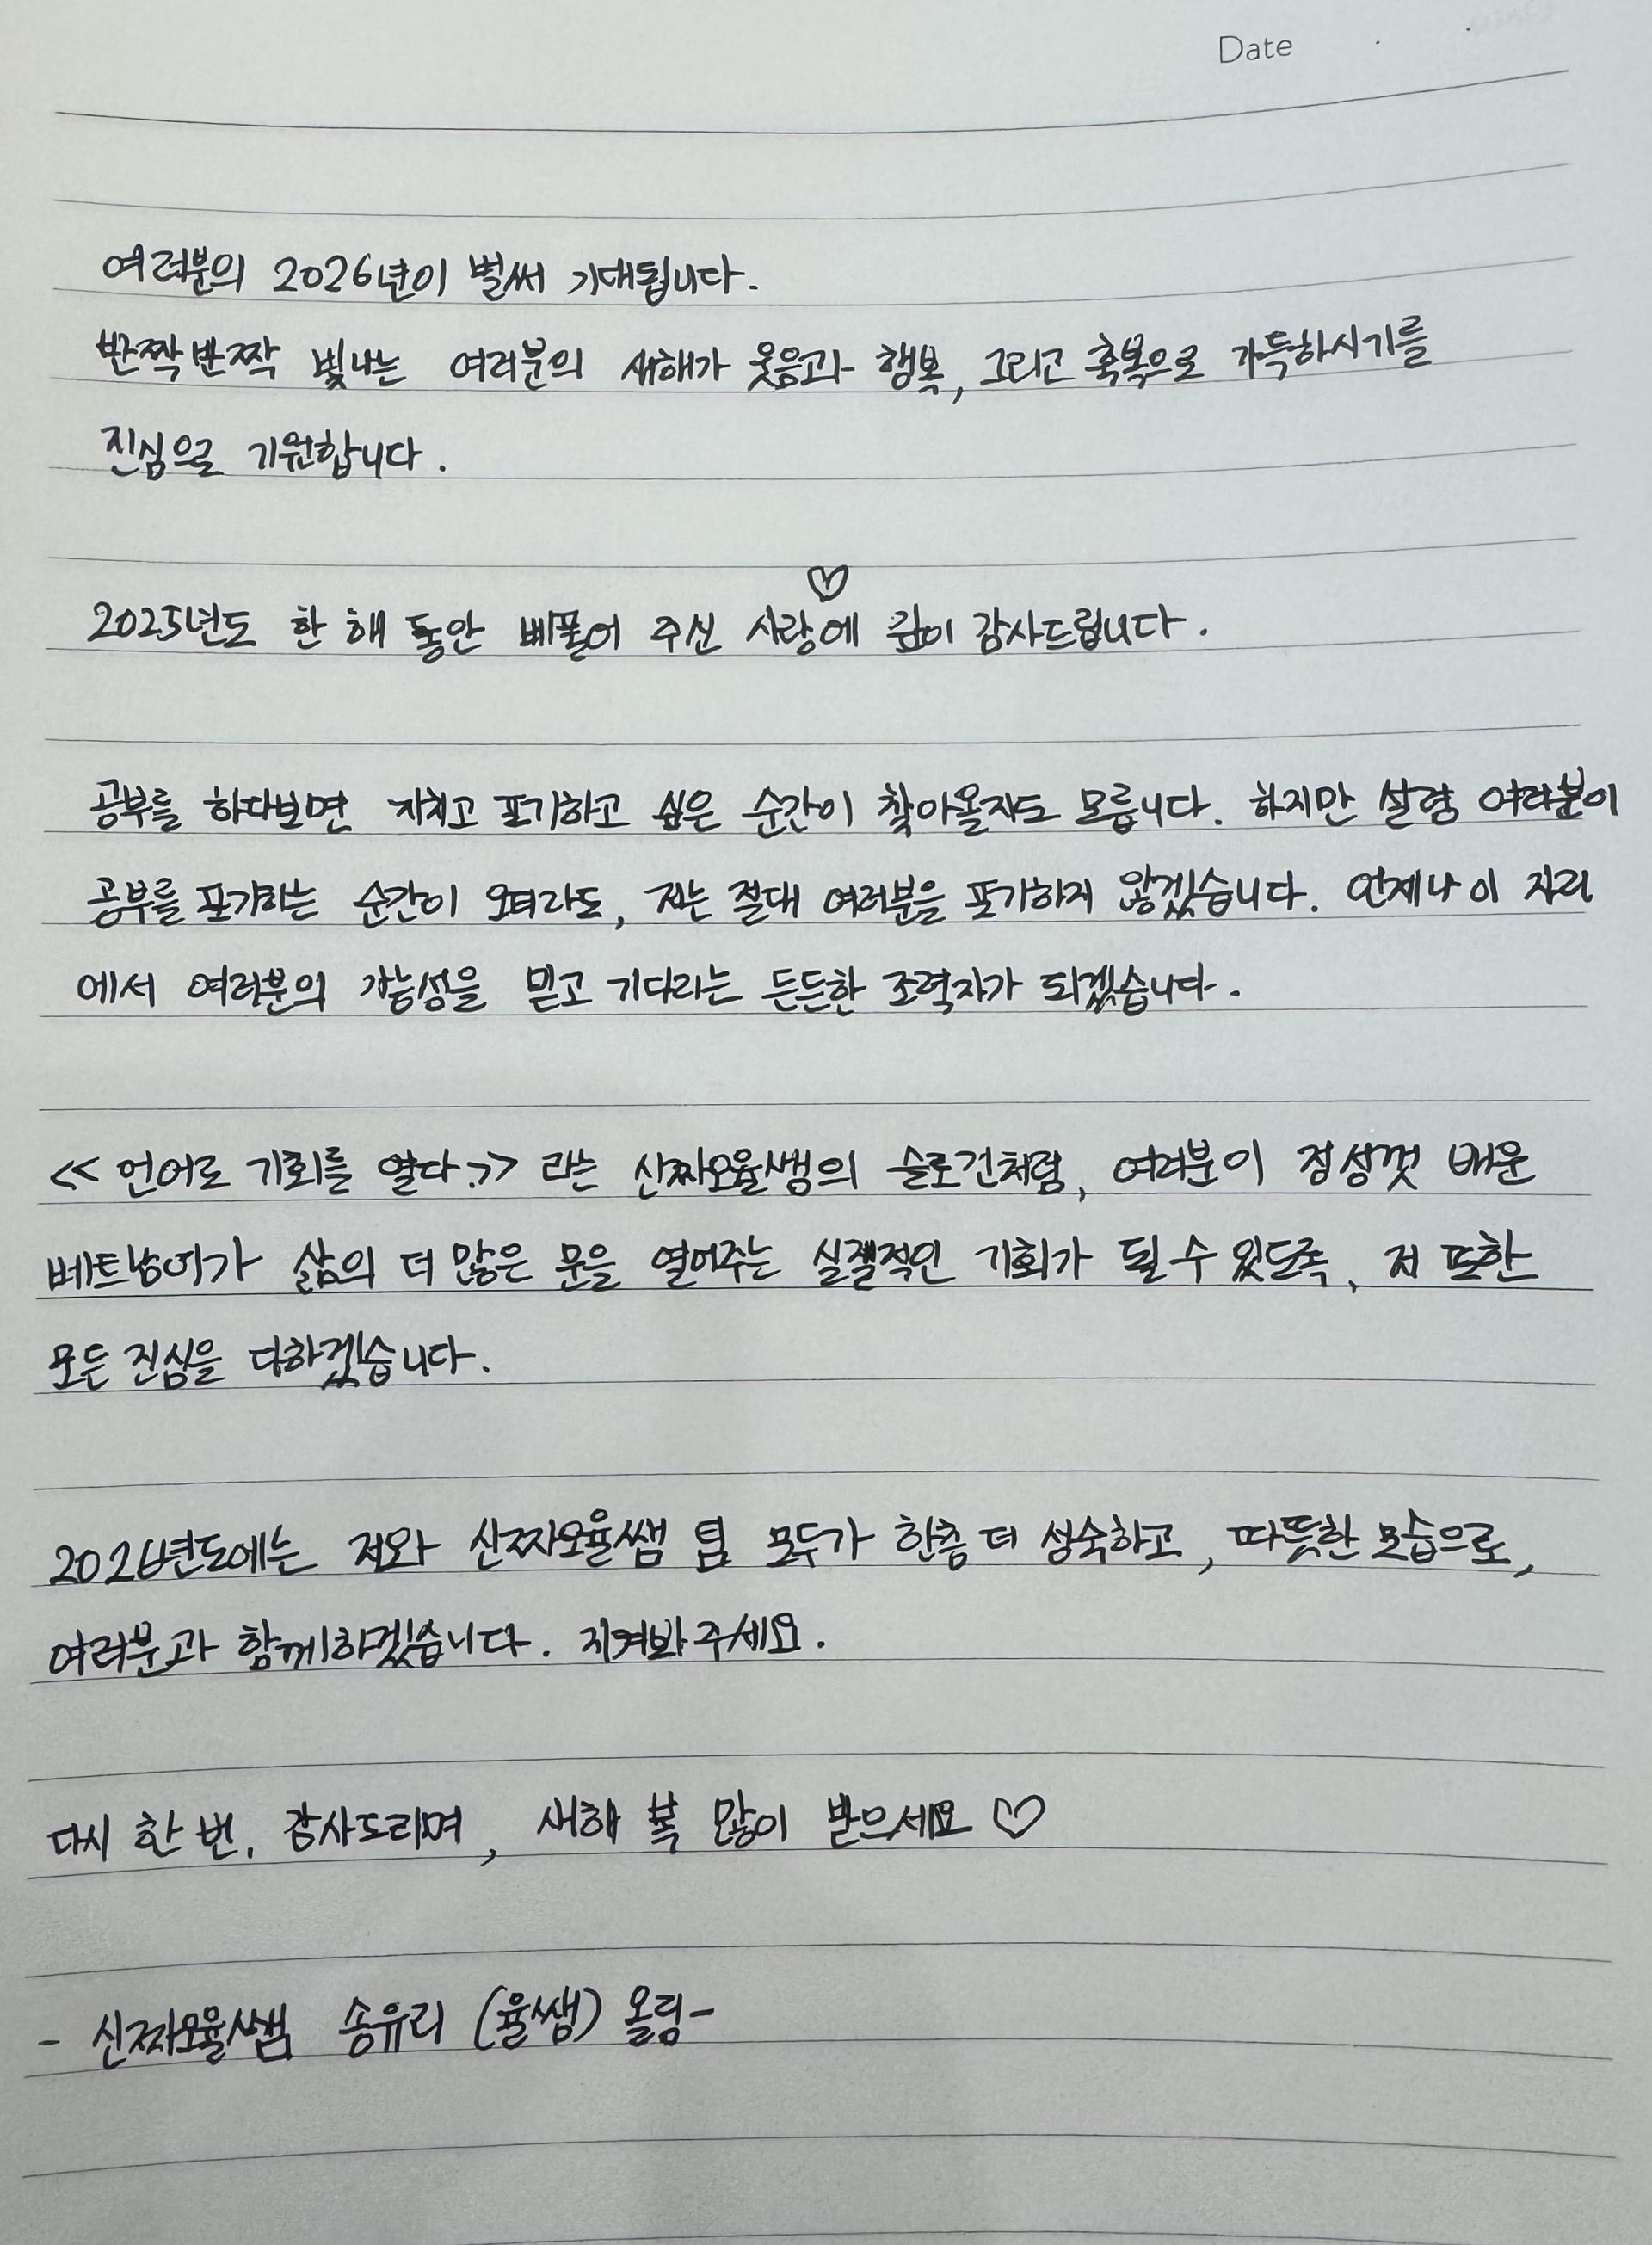 Date
여러분의 2026년이 벌써 기대됩니다.
반짝반짝 빛나는 여러분의 새해가 웃음과 행복, 그리고 축복으로 가득하시기를
진심으로 기원합니다.
♡
2025년도 한 해 동안 베풀어 주신 사랑에 깊이 감사드립니다.
공부를 하다보면 지치고 포기하고 싶은 순간이 찾아올지도 모릅니다. 하지만 설령 여러분이
공부를 포기하는 순간이 오더라도, 저는 절대 여러분을 포기하지 않겠습니다. 언제나 이 자리
에서 여러분의 가능성을 믿고 기다리는 든든한 조력자가 되겠습니다.
<< 언어로 기회를 열다.>> 라는 신짜오율쌤의 슬로건처럼, 여러분이 정성껏 배운
베트남어가 삶의 더 많은 문을 열어주는 실질적인 기회가 될 수 있도록, 저 또한
모든 진심을 다하겠습니다.
2026년도에는 저와 신짜오율쌤 팀 모두가 한층 더 성숙하고, 따뜻한 모습으로,
여러분과 함께하겠습니다. 지켜봐주세요.
다시 한 번, 감사드리며, 새해 복 많이 받으세요 ♡
- 신짜오율쌤 송유리 (율쌤) 올림-